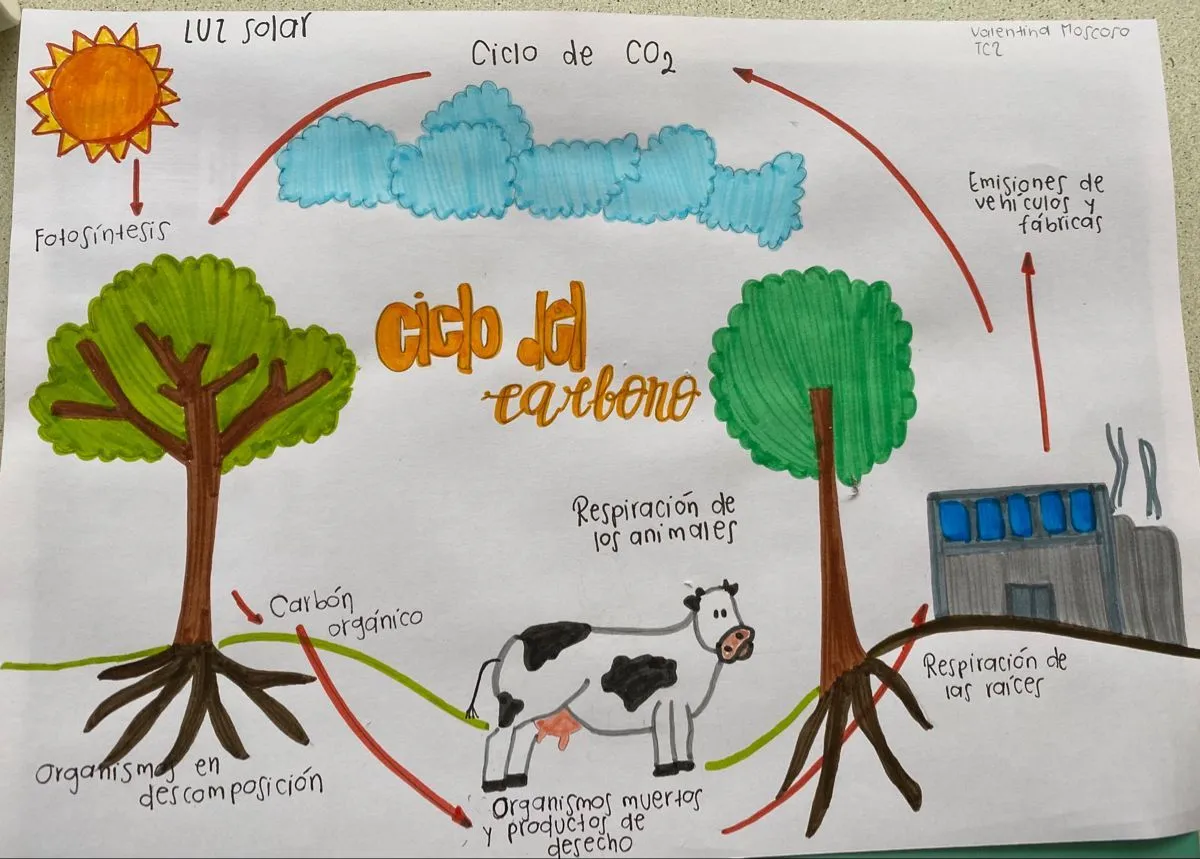 LUZ solar
Ciclo de CO2
Valentina Moscoso
TC2
Emisiones de
vehiculos y
fábricas
Fotosíntesis
ciclo del
carbono
Respiración de
los animales
Carbón
orgánico
Respiración de
las raíces
Organismos en
descomposición
Organismos muertos
y productos de
desecho